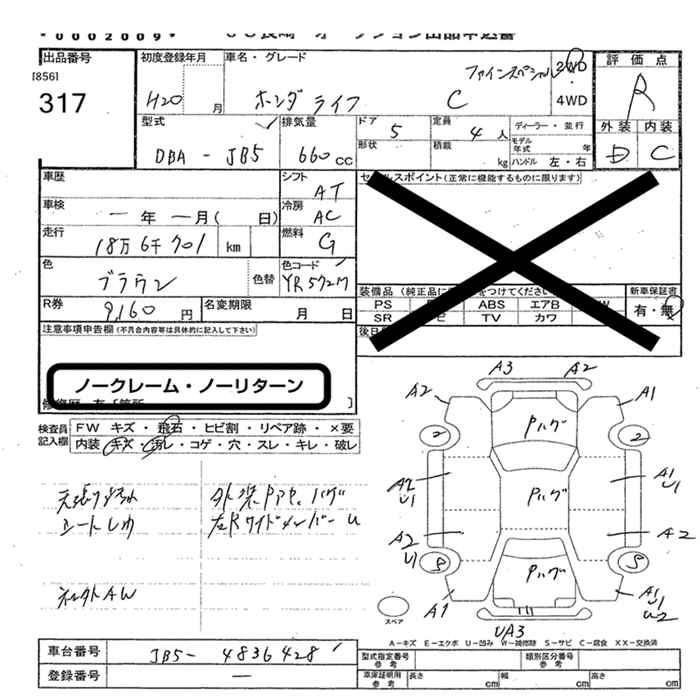 *0002009*
出品番号 初度登録年月 車名・グレード 評価点
[856] ファインスペシャル 2WD
317 H20 月 ホンダ ライフ C 4WD R
型式 排気量 ドア 定員 ディーラー・並行 外装 内装
DBA - JB5 660 CC 5 4人 モデル年式 年 D C
形状 積載 kg ハンドル 左・右
車歴 シフト AT セールスポイント(正常に機能するものに限ります)
車検 ー年ー月( 日) 冷房 AC
走行 18万6千701 km 燃料 G
色 ブラウン 色替 色コード YR572M
装備品(純正品に をつけてください) 新車保証書
R券 9,160円 名変期限 月 日 PS ABS エアB W 有・無
SR TV カワ
注意事項申告欄(不具合内容等は具体的に記入して下さい) 後日
ノークレーム・ノーリターン
検査員記入欄 FW キズ・飛石・ヒビ割・リペア跡・×要
内装 キズ・汚レ・コゲ・穴・スレ・キレ・破レ
A3 A2
A2 A1
Pハゲ
2 2
外装 ハゲ
シート
左Rサイドメンバー U
A2 U1 Pハゲ A1 U1
A2 U1 A2
Pハゲ
社外AW
A1 A1 U1 U2
スペア
UA3
A-キズ E-エクボ U-凹み W-補修跡 S-サビ C-腐食 XX-交換済
車台番号 JB5- 4836428
型式指定番号 参考 類別区分番号 参考
登録番号 ー
車庫証明用 参考 長さ cm 幅 cm 高さ cm